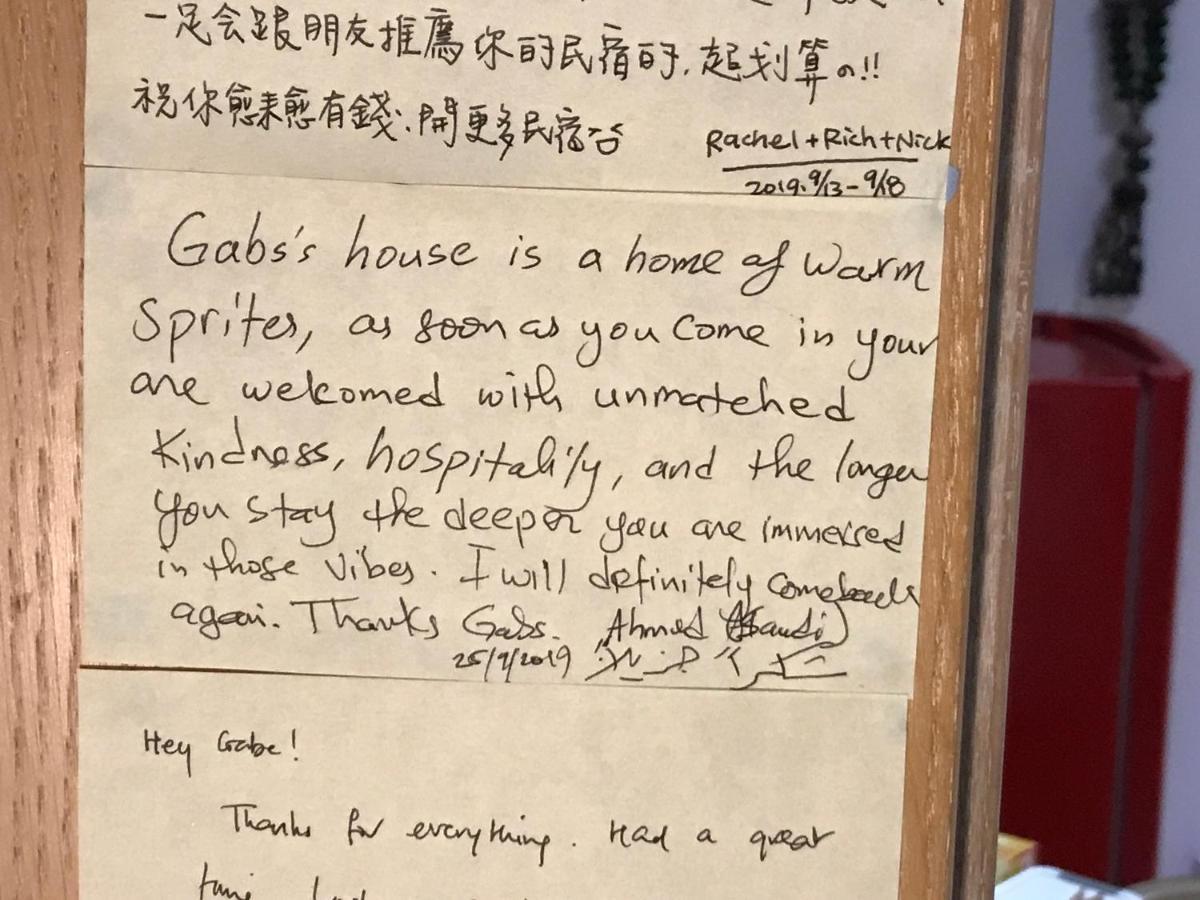 一定会跟朋友推薦你的民宿的, 超划算の!!
祝你愈来愈有錢、開更多民宿
Rachel+Rich+Nick
2019.9/13-9/18
Gabs's house is a home of warm
Sprites, as soon as you come in your
are welcomed with unmatched
kindness, hospitality, and the longer
you stay the deeper you are immersed
in those vibes. I will definitely
again. Thanks Gabs. Ahmed (Saudi)
25/9/2019
Hey Gabe!
Thanks for everything. Had a great
time